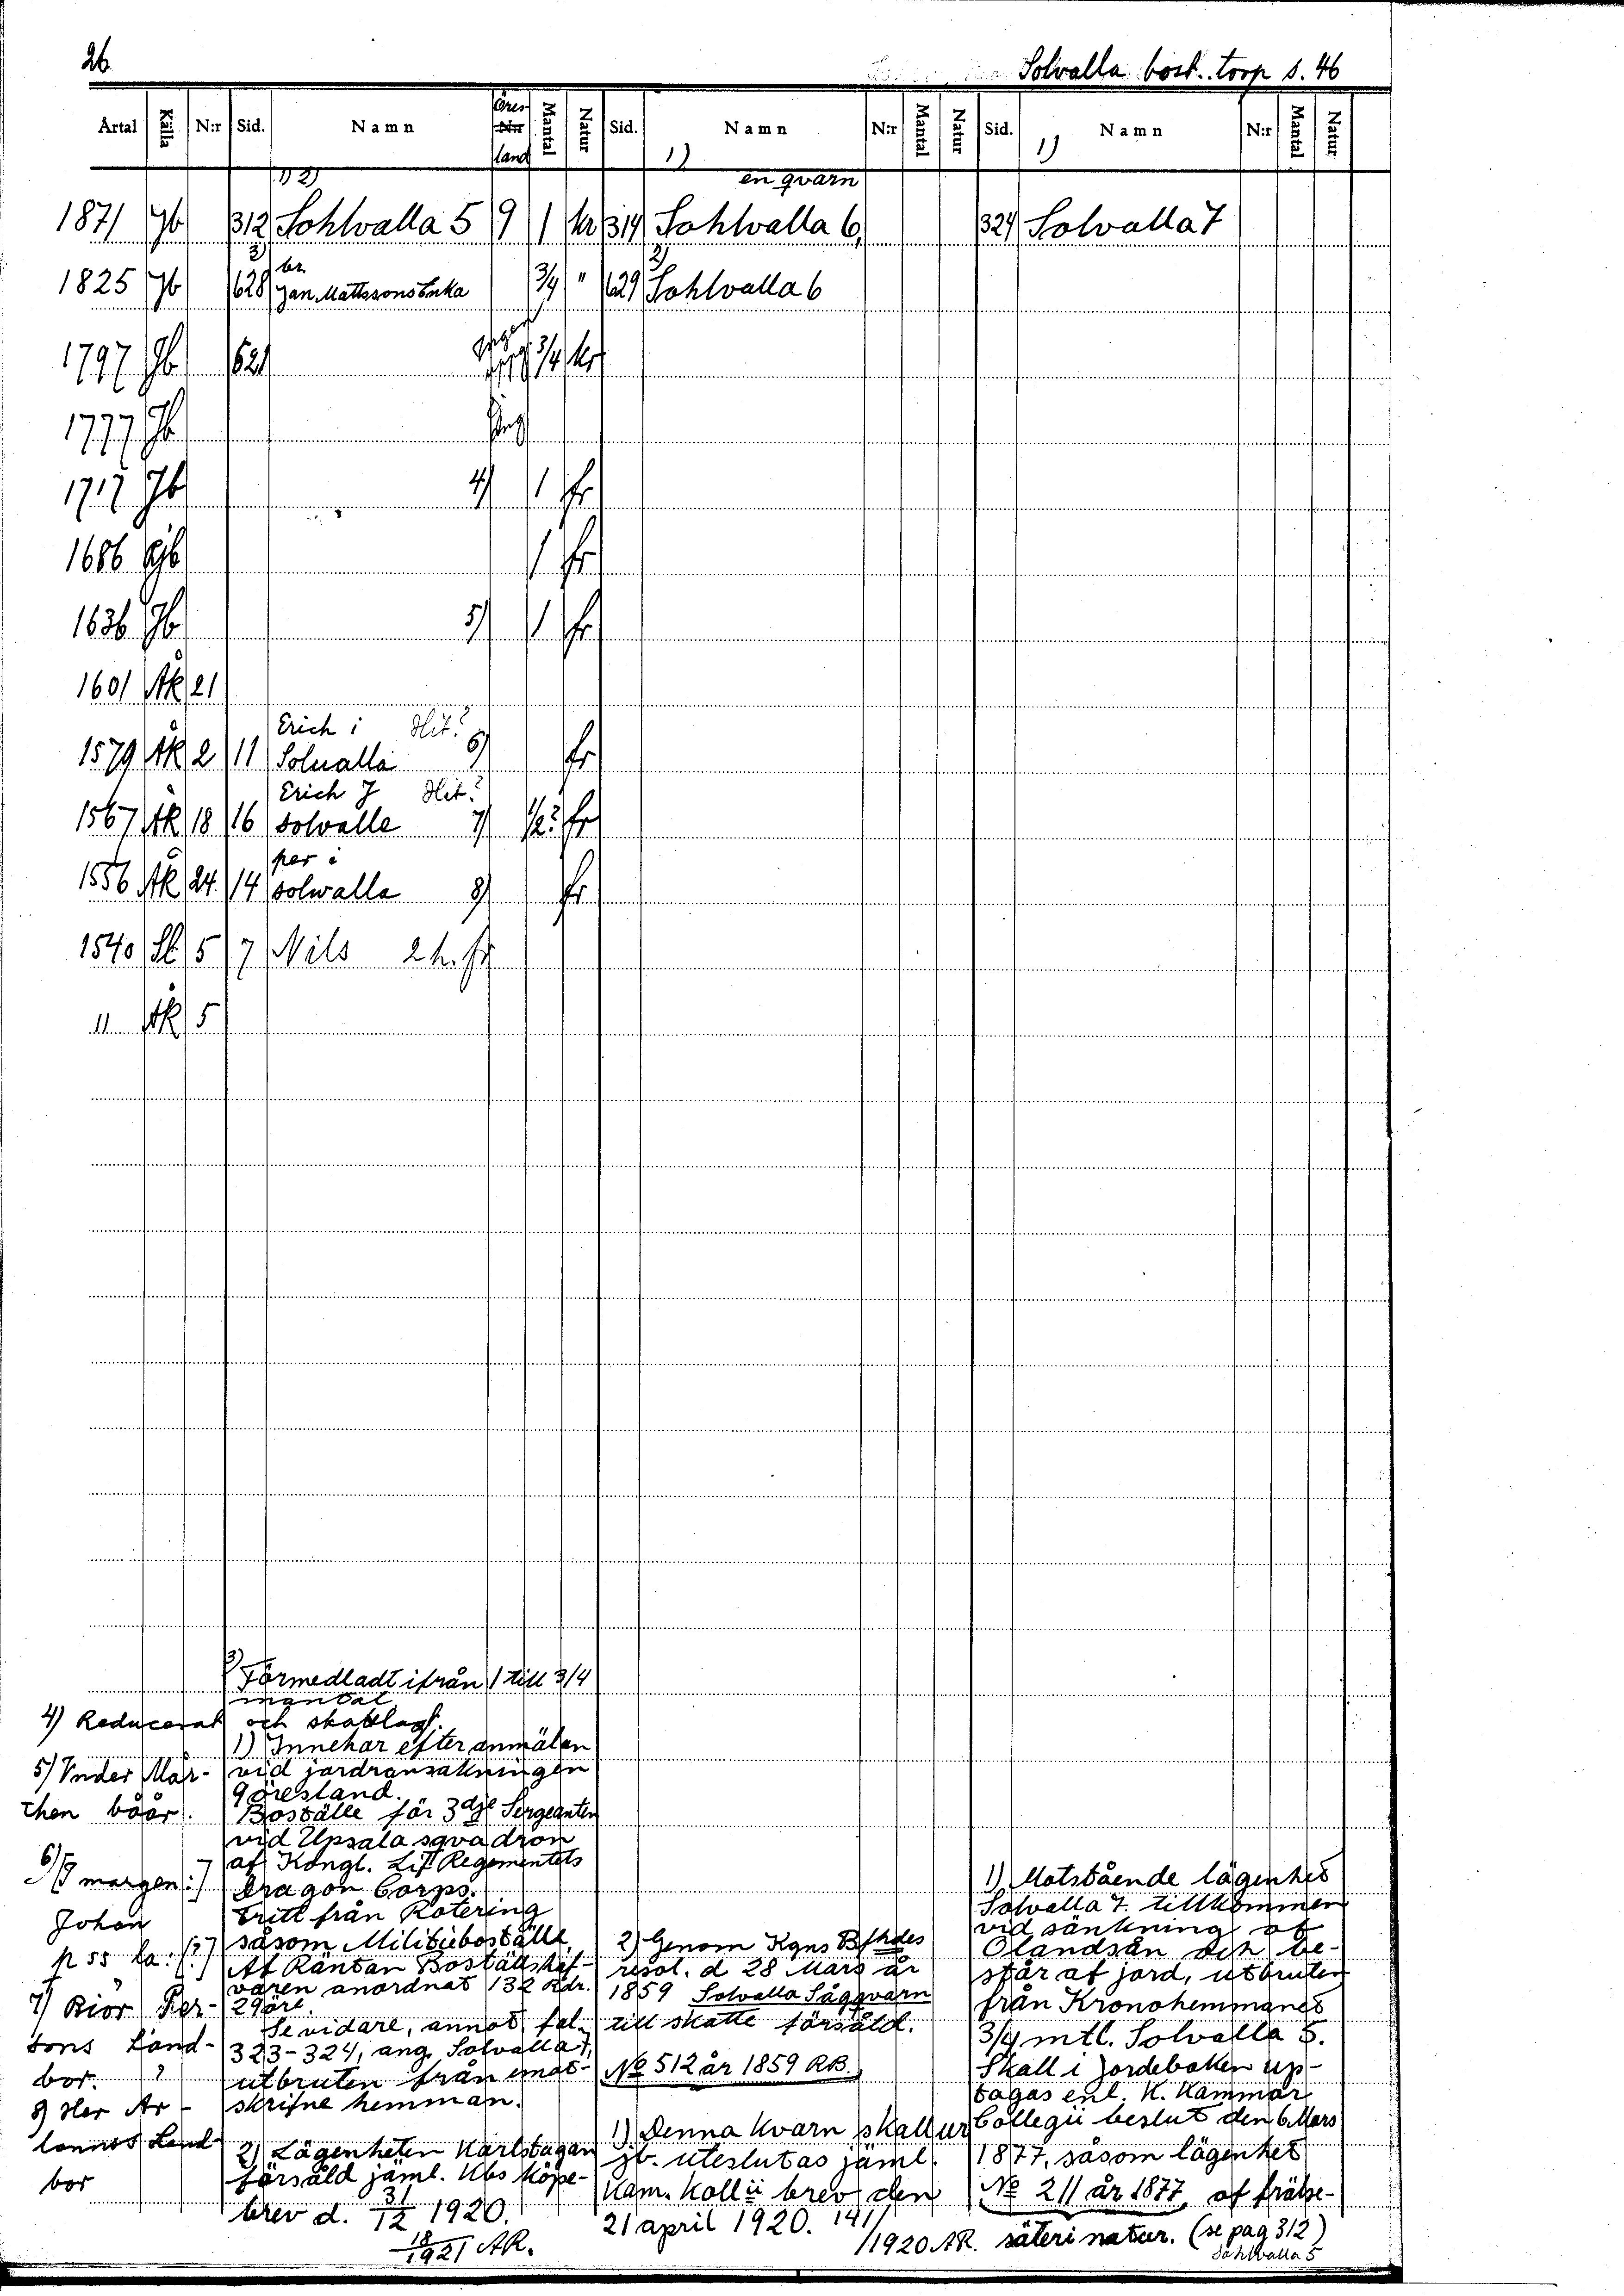 26
Solvalla bost. torp s. 46
Årtal Källa N:r Sid. Namn Öres land Mantal Natur Sid. Namn N:r Mantal Natur Sid. Namn N:r Mantal Natur
1) 2) 1) en qvarn 1)
1871 Jb 312 Sohlvalla 5 9 1 kr 314 Sohlvalla 6 324 Solvalla 7
3) br. 2)
1825 Jb 628 Jan Mattssons Enka 3/4 " 629 Sohlvalla 6
1797 Jb 621 3/4 kr
1777 Jb
1717 Jb 4) 1 fr
1686 Jb 1 fr
1636 Jb 5) 1 fr
1601 Åk 21
Erich i Hit?
1579 Åk 2 11 Solualla 6) fr
Erich J Hit?
1567 Åk 18 16 solvalle 7) 1/2? fr
per i
1556 Åk 24 14 solwalla 8) fr
1540 Sl 5 7 Nils 2 h. fr
" Åk 5
3) Förmedladt ifrån 1 till 3/4
mantal
4) Reducerat och skattlagt.
1) Innehar efter anmälan
vid jordransakningen
9 öresland.
Boställe för 3dje Sergeanten
vid Upsala sqvadron
af Kongl. Lif Regementets
Dragon Corps.
Fritt från Rotering
såsom Militieboställe.
Af Räntan Boställshaf-
varen anordnat 132 Rdr.
29 öre.
Se vidare, annot. fol.
323-324, ang. Solvalla 7,
utbruten från omot-
skrifne hemman.
2) Lägenheten Karlstagan
försåld jäml. Kbs köpe-
brev d. 31/12 1920.
18/1921 AR.
5) Vnder Mår-
then båår.
6) /I margen:/
Johan
p 55 la. (?)
7) Biör Per-
sons Land-
bor. ?
8) Her Ar-
lonnos Land-
bor
2) Genom Kgns Bfhdes
resol. d 28 Mars år
1859 Solvalla Sågqvarn
till skatte försåld.
No 512 år 1859 RB.
1) Denna kvarn skall ur
jb. uteslutas jäml.
Kam. Kollii brev den
21 april 1920. 141/
/1920 AR.
1) Motstående lägenhet
Solvalla 7. tillkommen
vid sänkning af
Olandsån och be-
står af jord, utbruten
från Kronohemmanet
3/4 mtl. Solvalla 5.
Skall i Jordeboken up-
tagas enl. K. Kammar
Collegii beslut den 6 Mars
1877, såsom lägenhet
No 211 år 1877 af frälse-
säteri natur. (se pag 312)
Sohlvalla 5